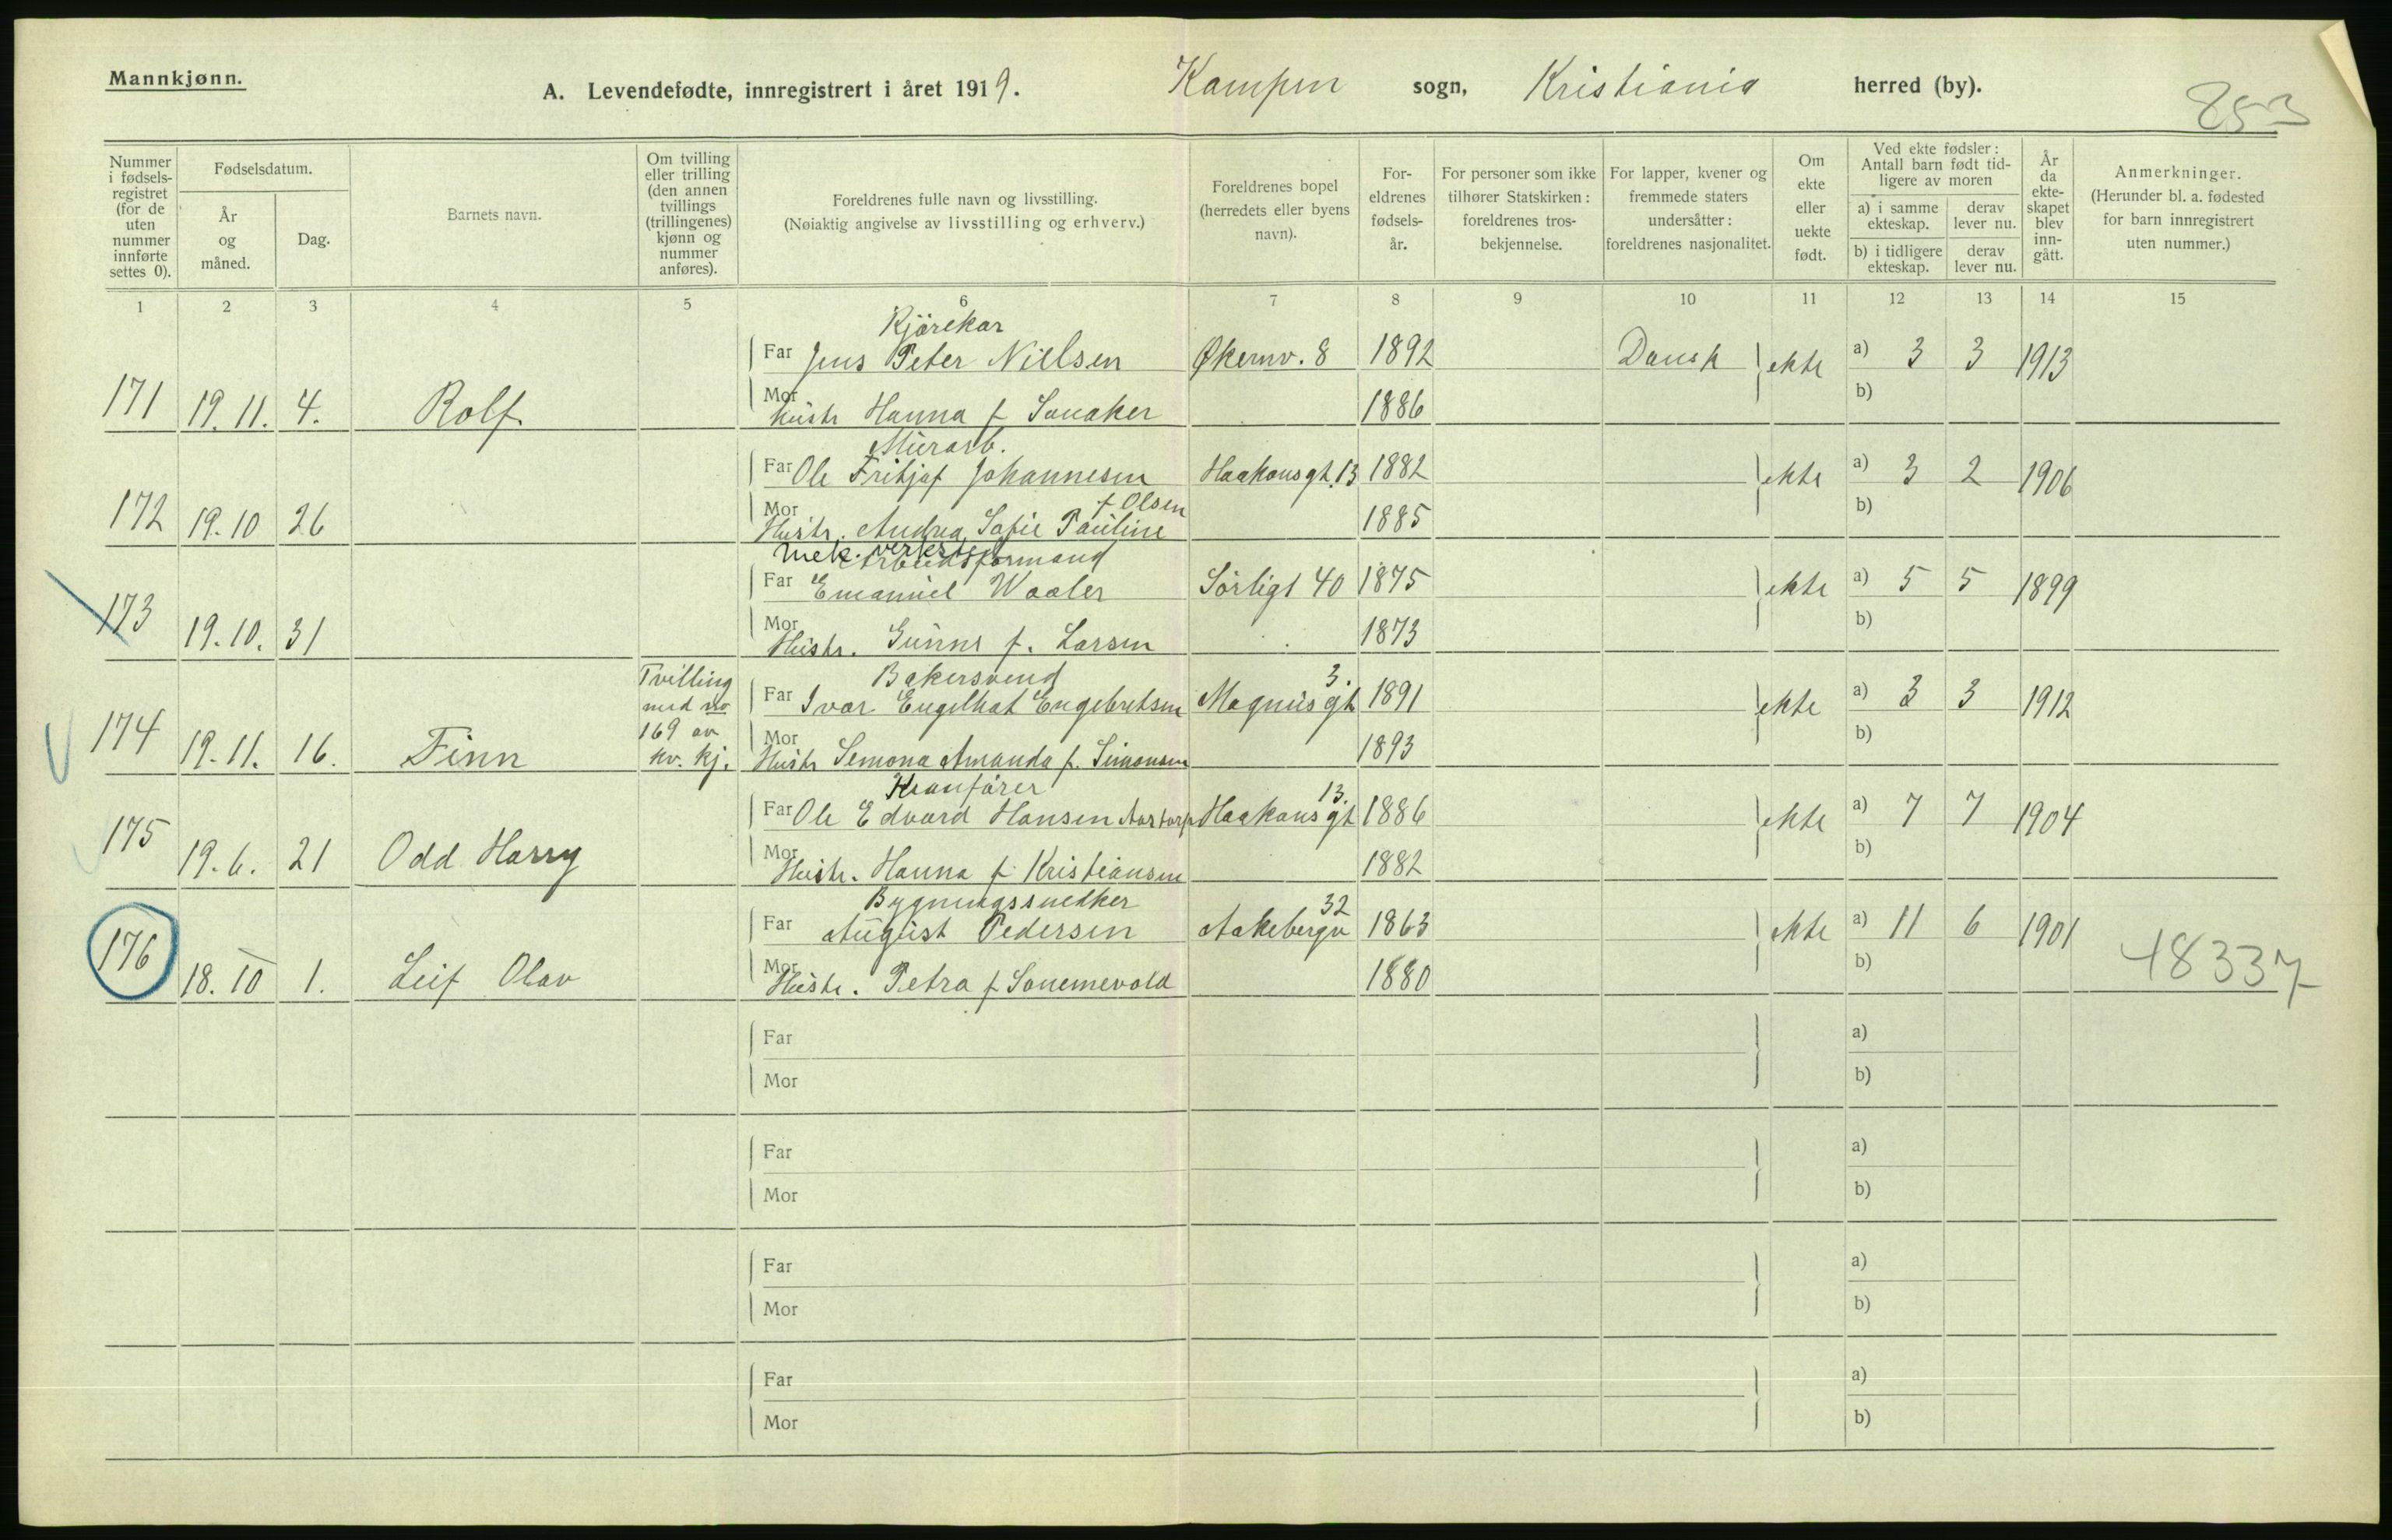 Mannkjønn.
A. Levendefødte, innregistrert i året 1919. Kampen sogn, Kristiania herred (by).
853
Nummer i fødsels-registret (for de uten nummer innførte settes 0).
Fødselsdatum.
År og måned.
Dag.
Barnets navn.
Om tvilling eller trilling (den annen tvillings (trillingenes) kjønn og nummer anføres).
Foreldrenes fulle navn og livsstilling.
(Nøiaktig angivelse av livsstilling og erhverv.)
Foreldrenes bopel (herredets eller byens navn).
For-eldrenes fødsels-år.
For personer som ikke tilhører Statskirken: foreldrenes tros-bekjennelse.
For lapper, kvener og fremmede staters undersåtter: foreldrenes nasjonalitet.
Om ekte eller uekte født.
Ved ekte fødsler: Antall barn født tid-ligere av moren
a) i samme ekteskap.
derav lever nu.
b) i tidligere ekteskap.
derav lever nu.
År da ekte-skapet blev inn-gått.
Anmerkninger.
(Herunder bl. a. fødested for barn innregistrert uten nummer.)
1 2 3 4 5 6 7 8 9 10 11 12 13 14 15
Kjörekar
Far Jens Peter Nielsen Økernv. 8 1892 Dansk ekte a) 3 3 1913
171 19.11. 4. Rolf
Mor Hustr Hanna f 1886 b)
Murarb.
Far Ole Fritjof Johannesen Haakonsgt. 13 1882 ekte a) 3 2 1906
f Olsen
172 19.10 26
Mor Hustr. Andrea Sofie Pauline 1885 b)
Mek. verksted
Arbeidsformand
Far Emanuel Waaler Sörligt 40 1875 ekte a) 5 5 1899
173 19.10. 31
Mor Hustr. f. Larsen 1873 b)
Bakersvend
Tvilling med no 169 av kv. kj.
3.
Far Ivar Engelhat Engebretsen Magnusgt 1891 ekte a) 3 3 1912
174 19.11. 16. Finn
Mor Hustr Semona Amanda f. Simonsen 1893 b)
Kranfører
13.
Far Ole Edvard Hansen Haakonsgt 1886 ekte a) 7 7 1904
175 19.6. 21 Odd Harry
Mor Hustr. Hanna f Kristiansen 1882 b)
Bygningssnedker
32
Far August Pedersen Aakebergv 1863 ekte a) 11 6 1901
176 18.10 1. Leif Olav
Mor Hustr. Petra f 1880 b)
48337
Far a)
Mor b)
Far a)
Mor b)
Far a)
Mor b)
Far a)
Mor b)